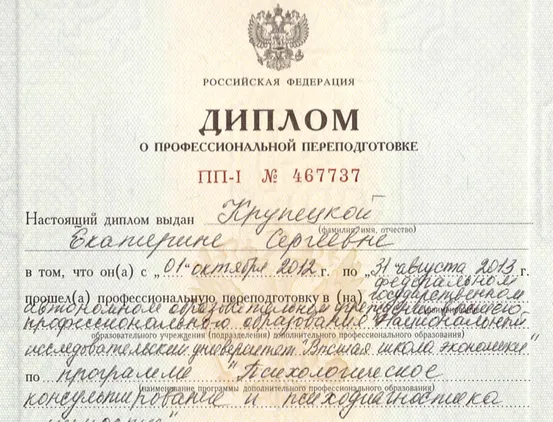 РОССИЙСКАЯ ФЕДЕРАЦИЯ
ДИПЛОМ
О ПРОФЕССИОНАЛЬНОЙ ПЕРЕПОДГОТОВКЕ
ПП-I № 467737
Настоящий диплом выдан Крупецкой
(фамилия, имя, отчество)
Екатерине Сергеевне
в том, что он(а) с „01" октября 2012 г. по „31" августа 2013 г.
прошел(а) профессиональную переподготовку в (на) федеральном государственном
автономном образовательном учреждении высшего
профессионального образования "Национальный
образовательного учреждения (подразделения) дополнительного профессионального образования)
исследовательский университет "Высшая школа экономики"
по программе "Психологическое
(наименование программы дополнительного профессионального образования)
консультирование и психодиагностика
личности"